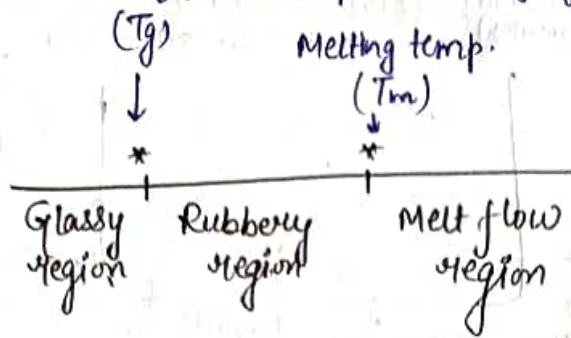 (Tg)
Melting temp.
(Tm)
Glassy region
Rubbery region
Melt flow region